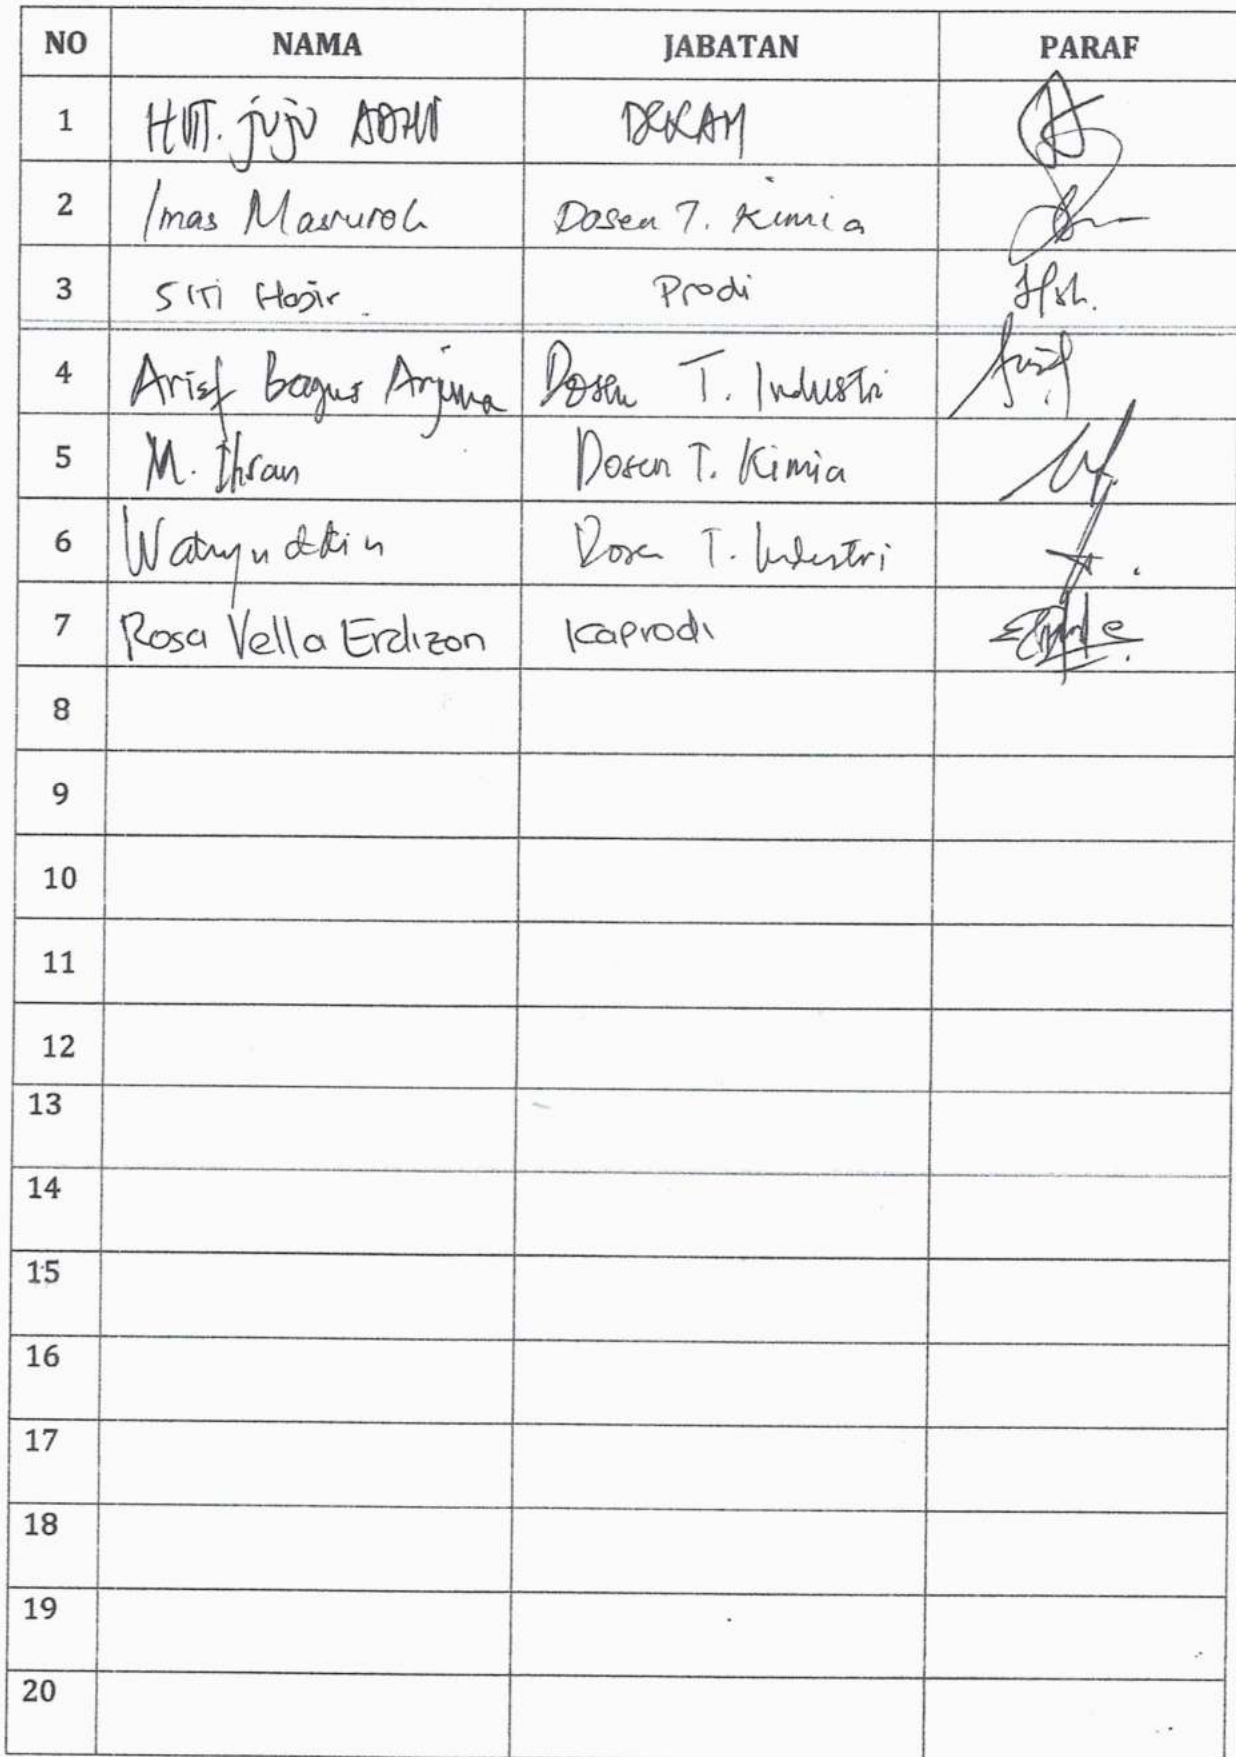 NO NAMA JABATAN PARAF
1 juju
2 Imas Masruroh Dosen T. Kimia
3 Siti Prodi
4 Arief Bagus Arjuna Dosen T. Industri
5 M. Ihsan Dosen T. Kimia
6 Dosen T. Industri
7 Rosa Vella Erdizon Kaprodi
8
9
10
11
12
13
14
15
16
17
18
19
20